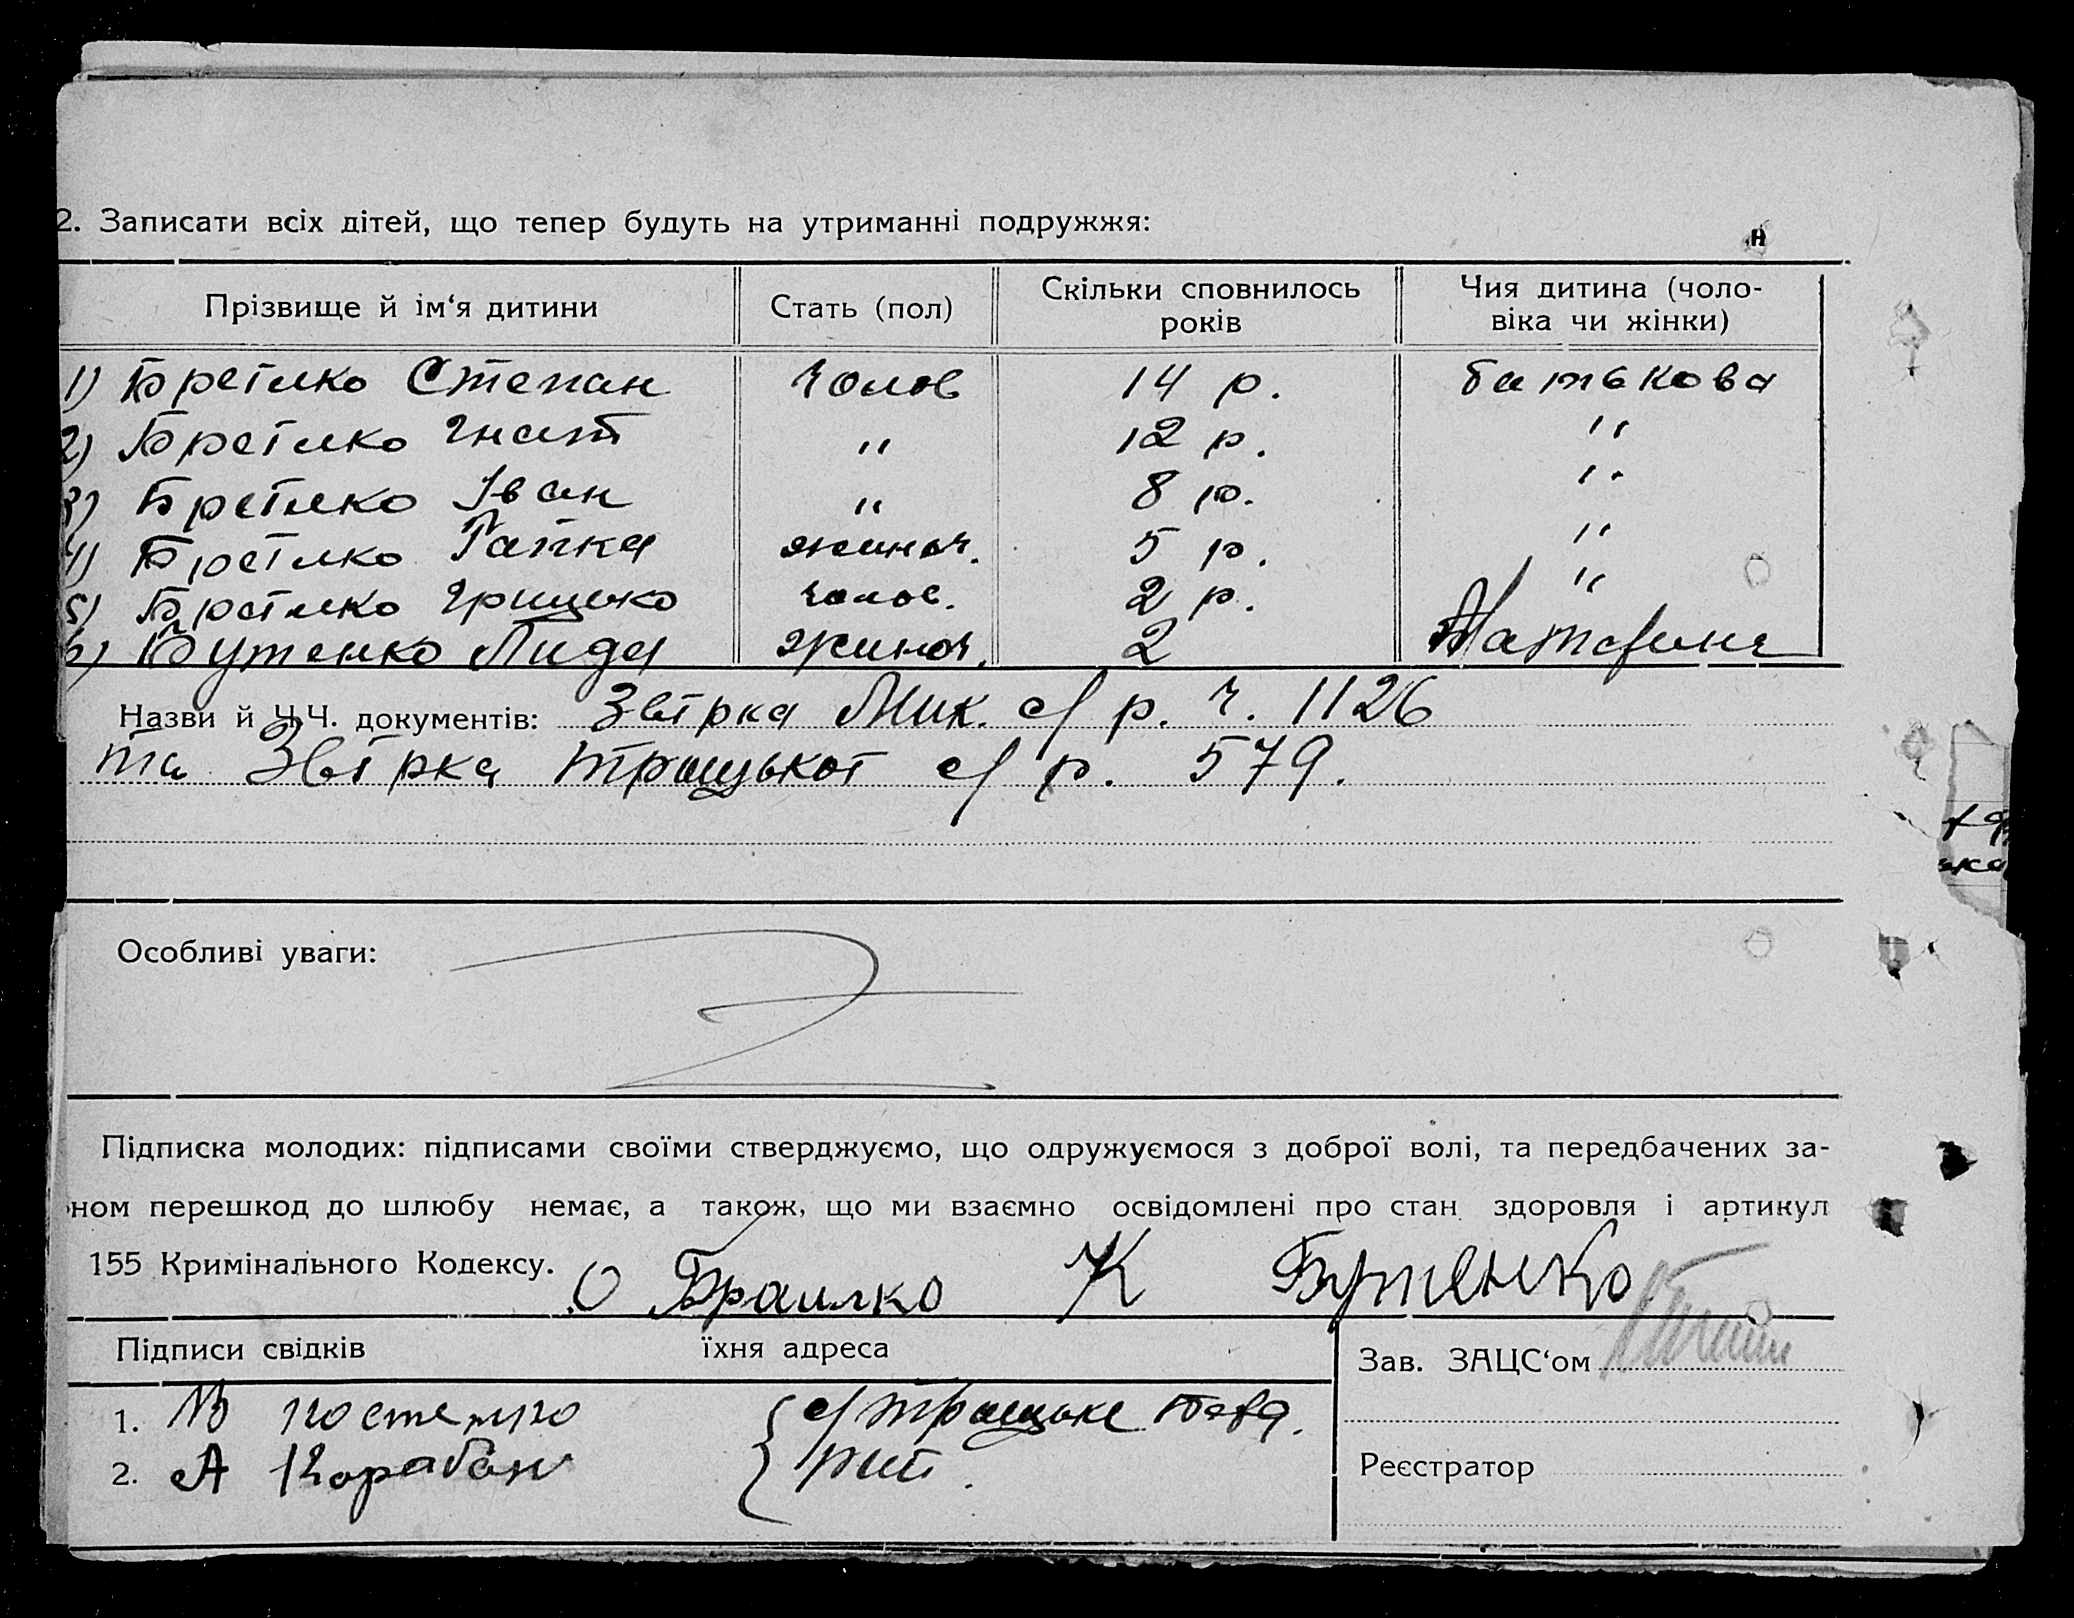 2. Записати всіх дітей, що тепер будуть на утриманні подружжя:
Прізвище й ім‘я дитини Стать (пол) Скільки сповнилось років Чия дитина (чоловіка чи жінки)
1) Степан Чолов 14 р. батькова
2) Гнат " 12 р. "
3) Іван " 8 р. "
4) Гапка жиноч. 5 р. "
5) Грицько чолов. 2 р. "
6) Бутенко Лида жиноч. 2
Назви й Ч.Ч. документів: Звірка Мик. с/р. ч. 1126
та Звірка Троицькоі с/р. 579.
Особливі уваги:
Підписка молодих: підписами своїми стверджуємо, що одружуємося з доброї волі, та передбачених за-
ном перешкод до шлюбу немає, а також, що ми взаємно освідомлені про стан здоровля і артикул
155 Кримінального Кодексу. О К Бутенко
Підписи свідків їхня адреса Зав. ЗАЦС‘ом
1. с/Троицьке
2. А Карабан
Реєстратор